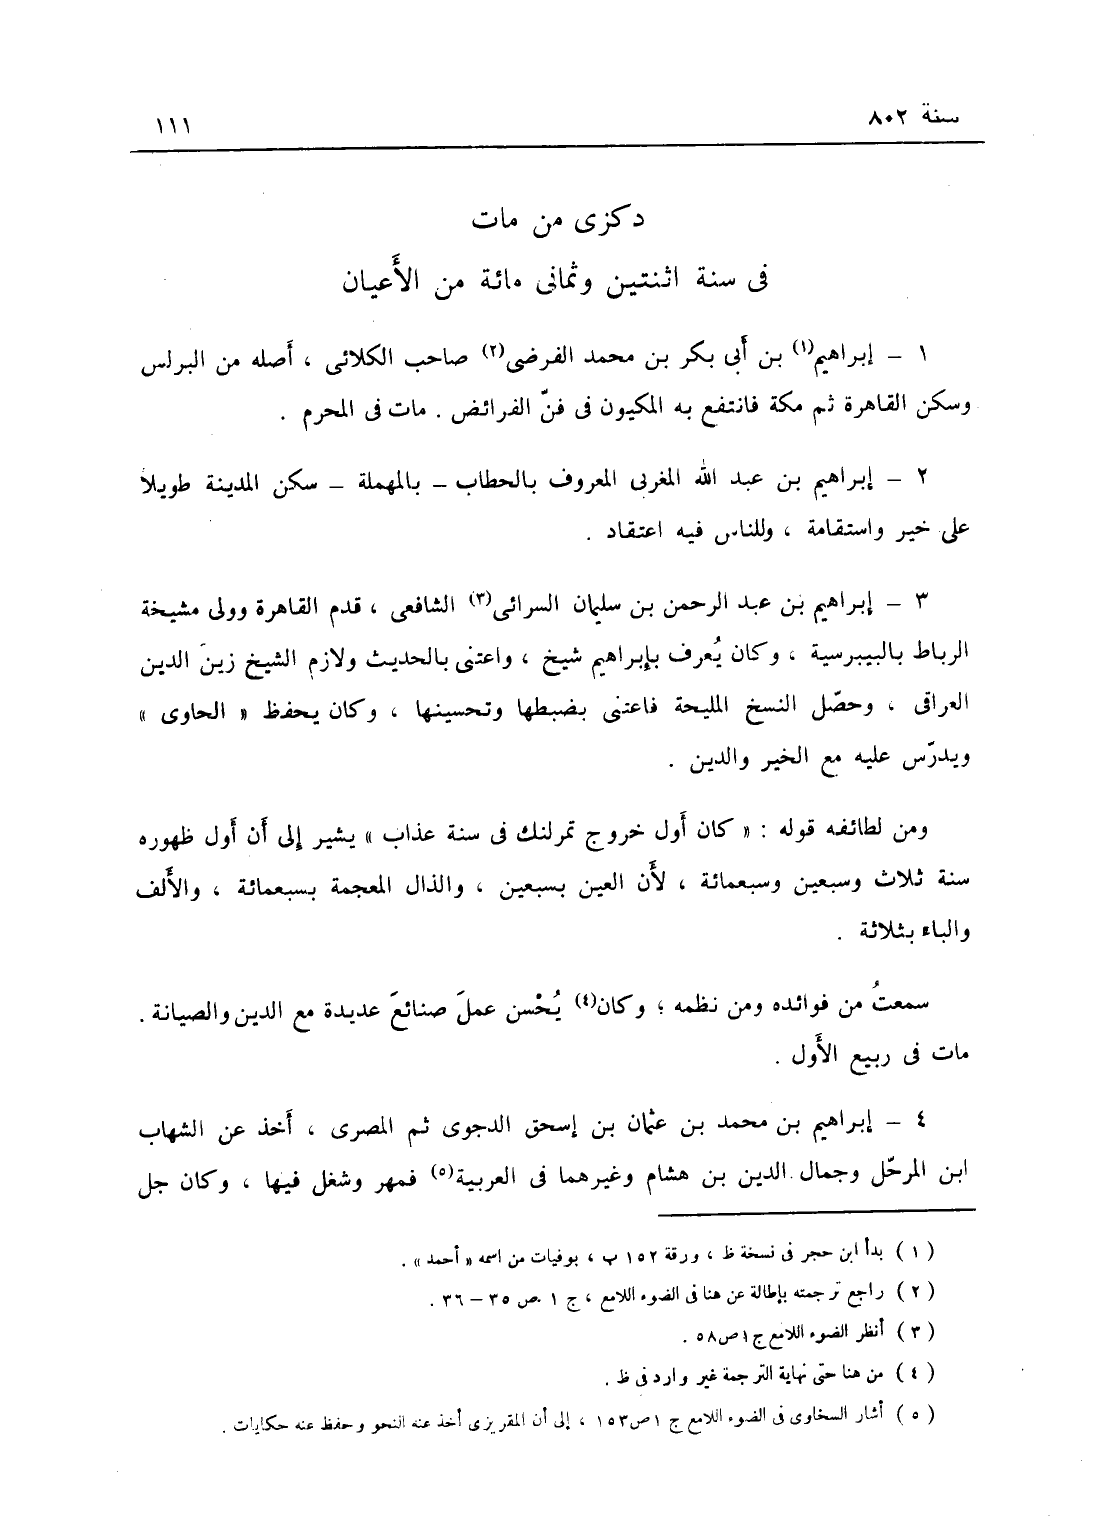 سنة ٨٠٢
١١١
دكزى من مات
فى سنة اثنتين وثمانى مائة من الأَعيان
١ – إبراهيم(١) بن أَبى بكر بن محمد الفرضى(٢) صاحب الكلائى ، أَصله من البرلس
وسكن القاهرة ثم مكة فانتفع به المكيون فى فنّ الفرائض . مات فى المحرم .
٢ – إبراهيم بن عبد الله المغربى المعروف بالحطاب – بالمهملة – سكن المدينة طويلاً
على خير واستقامة ، وللناس فيه اعتقاد .
٣ – إبراهيم بن عبد الرحمن بن سليمان السرائى(٣) الشافعى ، قدم القاهرة وولى مشيخة
الرباط بالبيبرسية ، وكان يُعرف بإبراهيم شيخ ، واعتنى بالحديث ولازم الشيخ زينَ الدين
العراقى ، وحصّل النسخ المليحة فاعتنى بضبطها وتحسينها ، وكان يحفظ « الحاوى »
ويدرّس عليه مع الخير والدين .
ومن لطائفه قوله : « كان أَول خروج تمرلنك فى سنة عذاب » يشير إلى أَن أَول ظهوره
سنة ثلاث وسبعين وسبعمائة ، لأَن العين بسبعين ، والذال المعجمة بسبعمائة ، والأَلف
والباء بثلاثة .
سمعتُ من فوائده ومن نظمه ؛ وكان(٤) يُحْسن عملَ صنائعَ عديدة مع الدين والصيانة .
مات فى ربيع الأَول .
٤ – إبراهيم بن محمد بن عثمان بن إسحق الدجوى ثم المصرى ، أَخذ عن الشهاب
ابن المرحّل وجمال الدين بن هشام وغيرهما فى العربية(٥) فمهر وشغل فيها ، وكان جل
( ١ ) بدأ ابن حجر فى نسخة ظ ، ورقة ١٥٢ ب ، بوفيات من اسمه « أحمد » .
( ٢ ) راجع ترجمته بإطالة عن هنا فى الضوء اللامع ، ج ١ ص ٣٥ – ٣٦ .
( ٣ ) أنظر الضوء اللامع ج ١ ص ٥٨ .
( ٤ ) من هنا حتى نهاية الترجمة غير وارد فى ظ .
( ٥ ) أشار السخاوى فى الضوء اللامع ج ١ ص ١٥٣ ، إلى أن المقريزى أخذ عنه النحو وحفظ عنه حكايات .